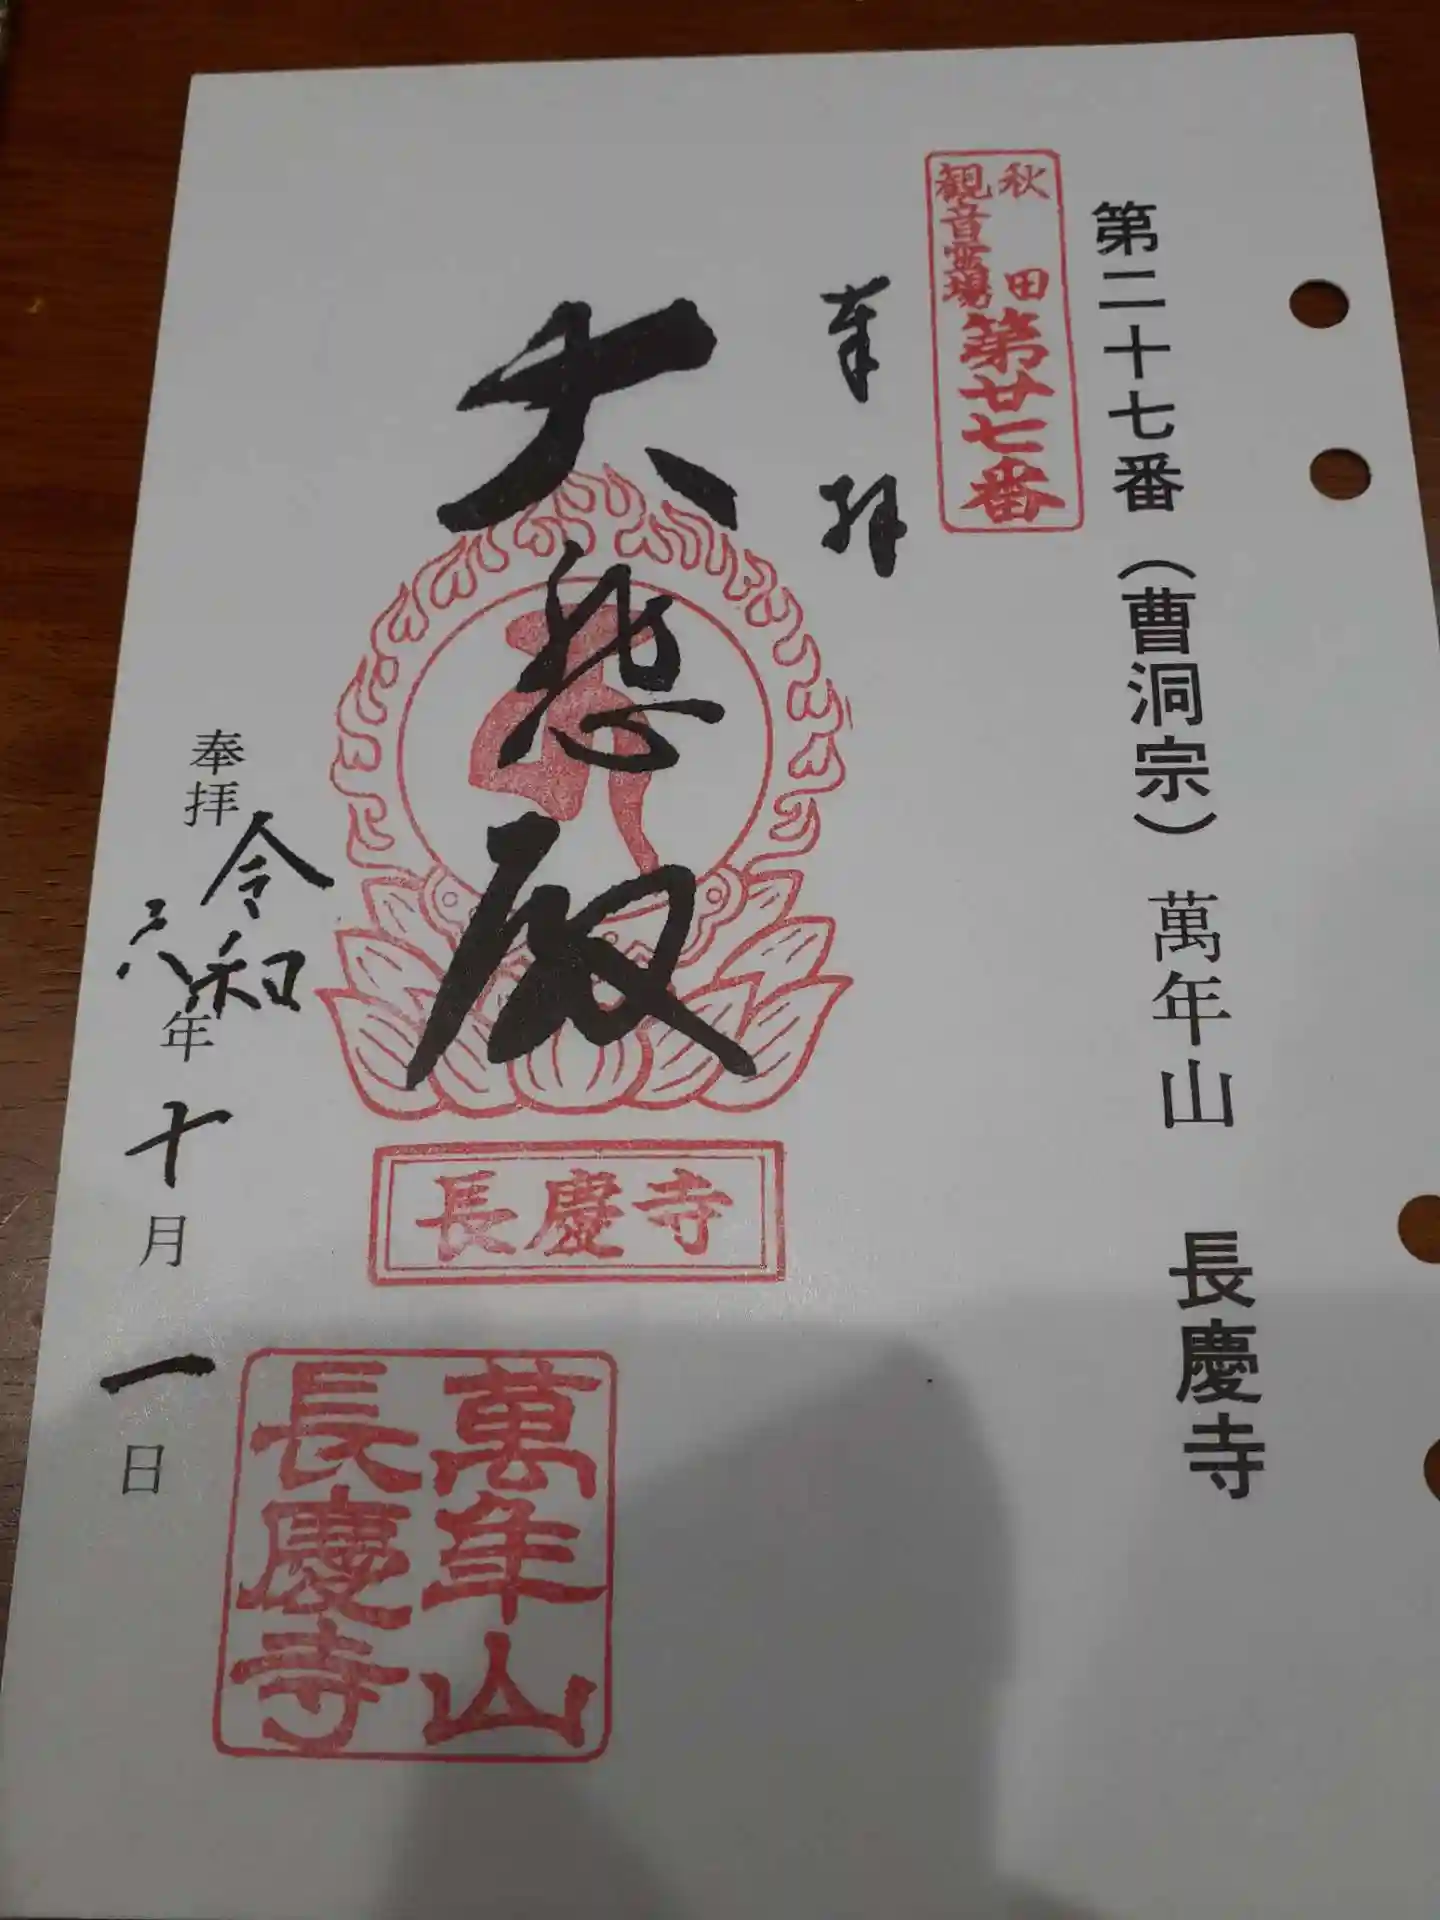 第二十七番（曹洞宗）萬年山 長慶寺
秋田
観音霊場
第廿七番
奉拝
大悲殿
長慶寺
萬年山
長慶寺
奉拝
令和
六年十月一日